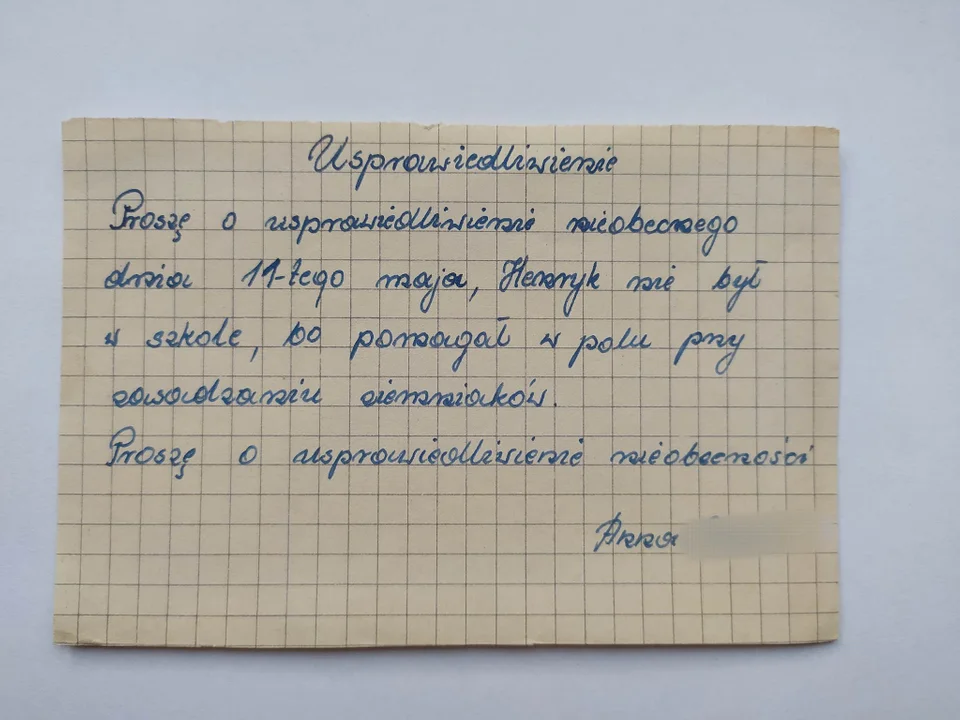 Usprawiedliwienie
Proszę o usprawiedliwienie nieobecnego
dnia 11-tego maja, Henryk nie był
w szkole, bo pomagał w polu przy
zawadzaniu ziemniaków.
Proszę o usprawiedliwienie nieobecności
Anna